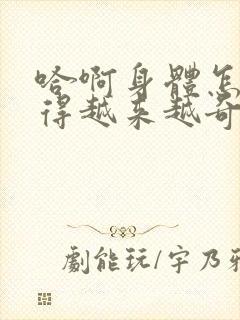 哈啊身體怎
得越来越奇
劇能玩/宇乃雅